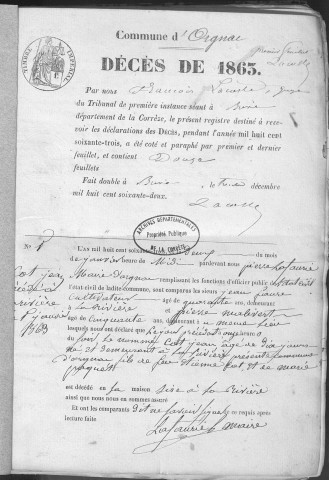 Commune d'Orgnac
premier feuillet
Lacoste
TIMBRE IMPÉRIAL
DÉCÈS DE 1863.
Par nous François Lacoste, juge
du Tribunal de première instance séant à Brive
département de la Corrèze, le présent registre destiné à recevoir
les déclarations des Décès, pendant l'année mil huit cent
soixante-trois, a été coté et paraphé par premier et dernier
feuillet, et contient Douze
feuillets
Fait double à Brive, le décembre
mil huit cent soixante-deux.
Lacoste
ARCHIVES DÉPARTEMENTALES
Propriété Publique
DE LA CORRÈZE
No 1
L'an mil huit cent soixante du mois
de janvier heure de Midi pardevant nous pierre Lafaurie
Maire d'orgnac remplissant les fonctions d'officier public
état civil de ladite commune, sont comparus les sieurs jean faure
cultivateur âgé de quarante ans, demeurant
à La Rivière et pierre
âgé de cinquante ans, demeurant à même lieu
lesquels nous ont déclaré que
Cot jean âgé de dix jours
né et demeurant à La Rivière présente commune
d'orgnac fils de Cot et de marie
est décédé en la maison sise à La Rivière
ainsi que nous nous en sommes assuré
Et ont les comparants dit ne savoir signer de ce requis après
lecture faite
Lafaurie maire
Cot jean
décédé à
La Rivière
1863